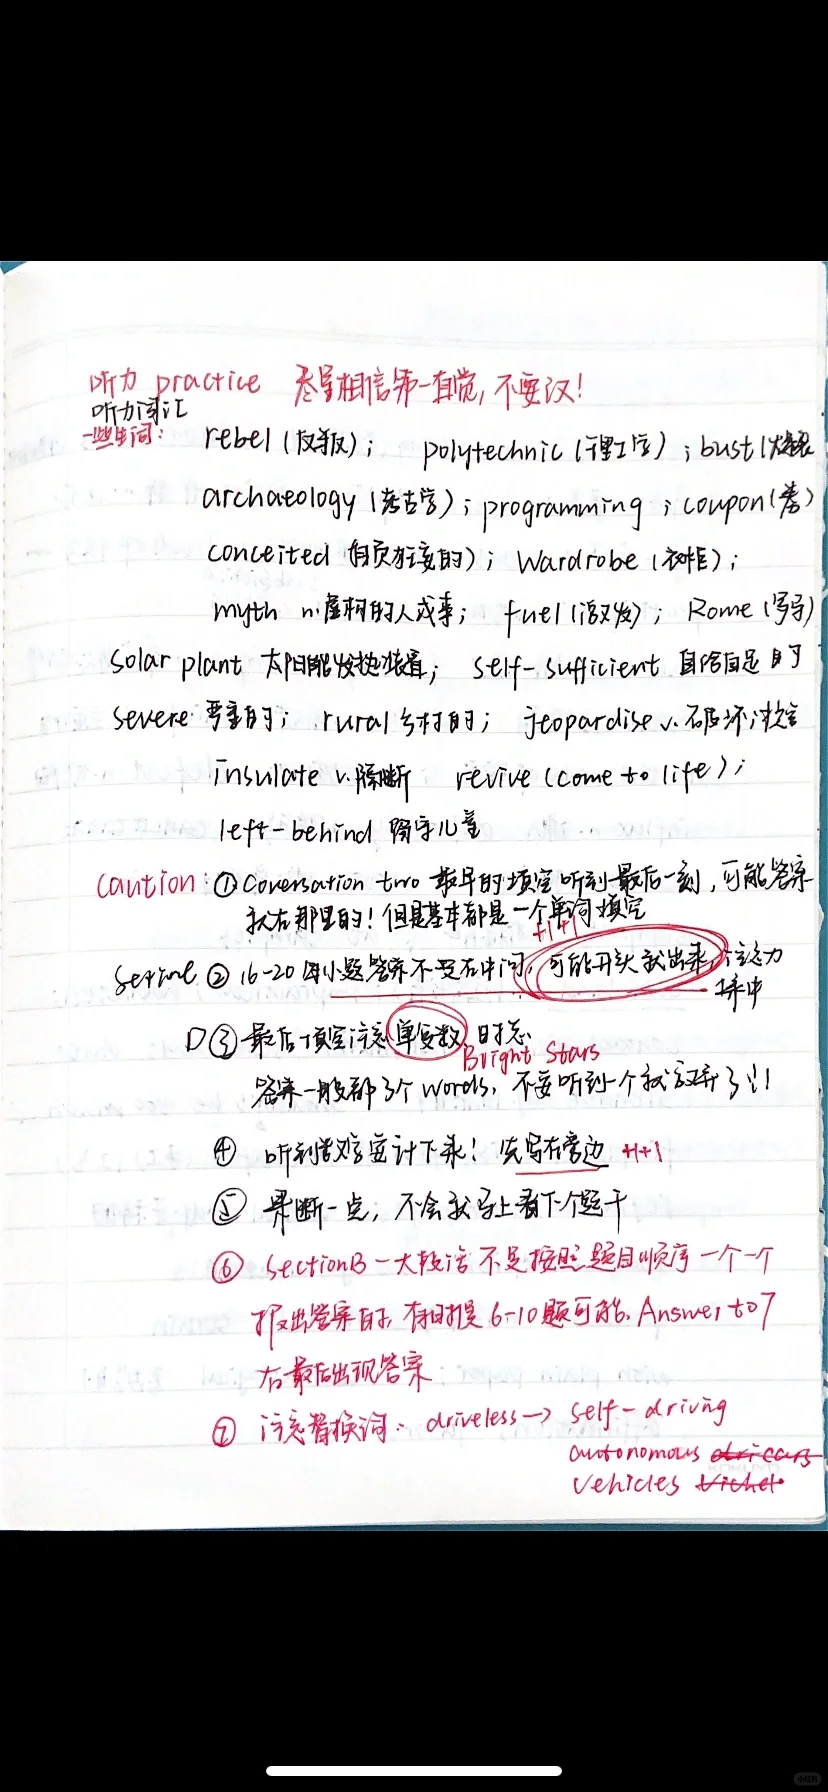 听力 practice 尽量相信第一直觉，不要改！
听力词汇
一些生词：rebel（反叛）； polytechnic（理工学）；bust（
archaeology（考古学）；programming；coupon（券）
conceited（自负狂妄的）；Wardrobe（衣柜）；
myth n.虚构的人或事； fuel（激发）； Rome（罗马）
solar plant 太阳能发热装置； self-sufficient 自给自足的
severe 严重的； rural 乡村的； jeopardise v.破坏
insulate v.隔断 revive (come to life)；
left-behind 留守儿童
Caution：① Coversation two 最早的填空听到最后一刻，可能答案
就在那里的！但基本都是一个单词填空
+1+1
② 16-20 小题答案不是在中间，可能开头就出来，注意力
集中
D ③ 最后填空注意单复数，时态
Bright Stars
答案一般都3个words，不要听到一个就 了！！
④ 听到数字要计下来！先写在旁边 +1+1
⑤ 果断一点，不会就马上看下个题干
⑥ SectionB 一大段话不是按照题目顺序一个一个
报出答案的，有时候是6-10题可能 Answer to 7
在最后出现答案
⑦ 注意替换词：driveless → self-driving
autonomous
vehicles